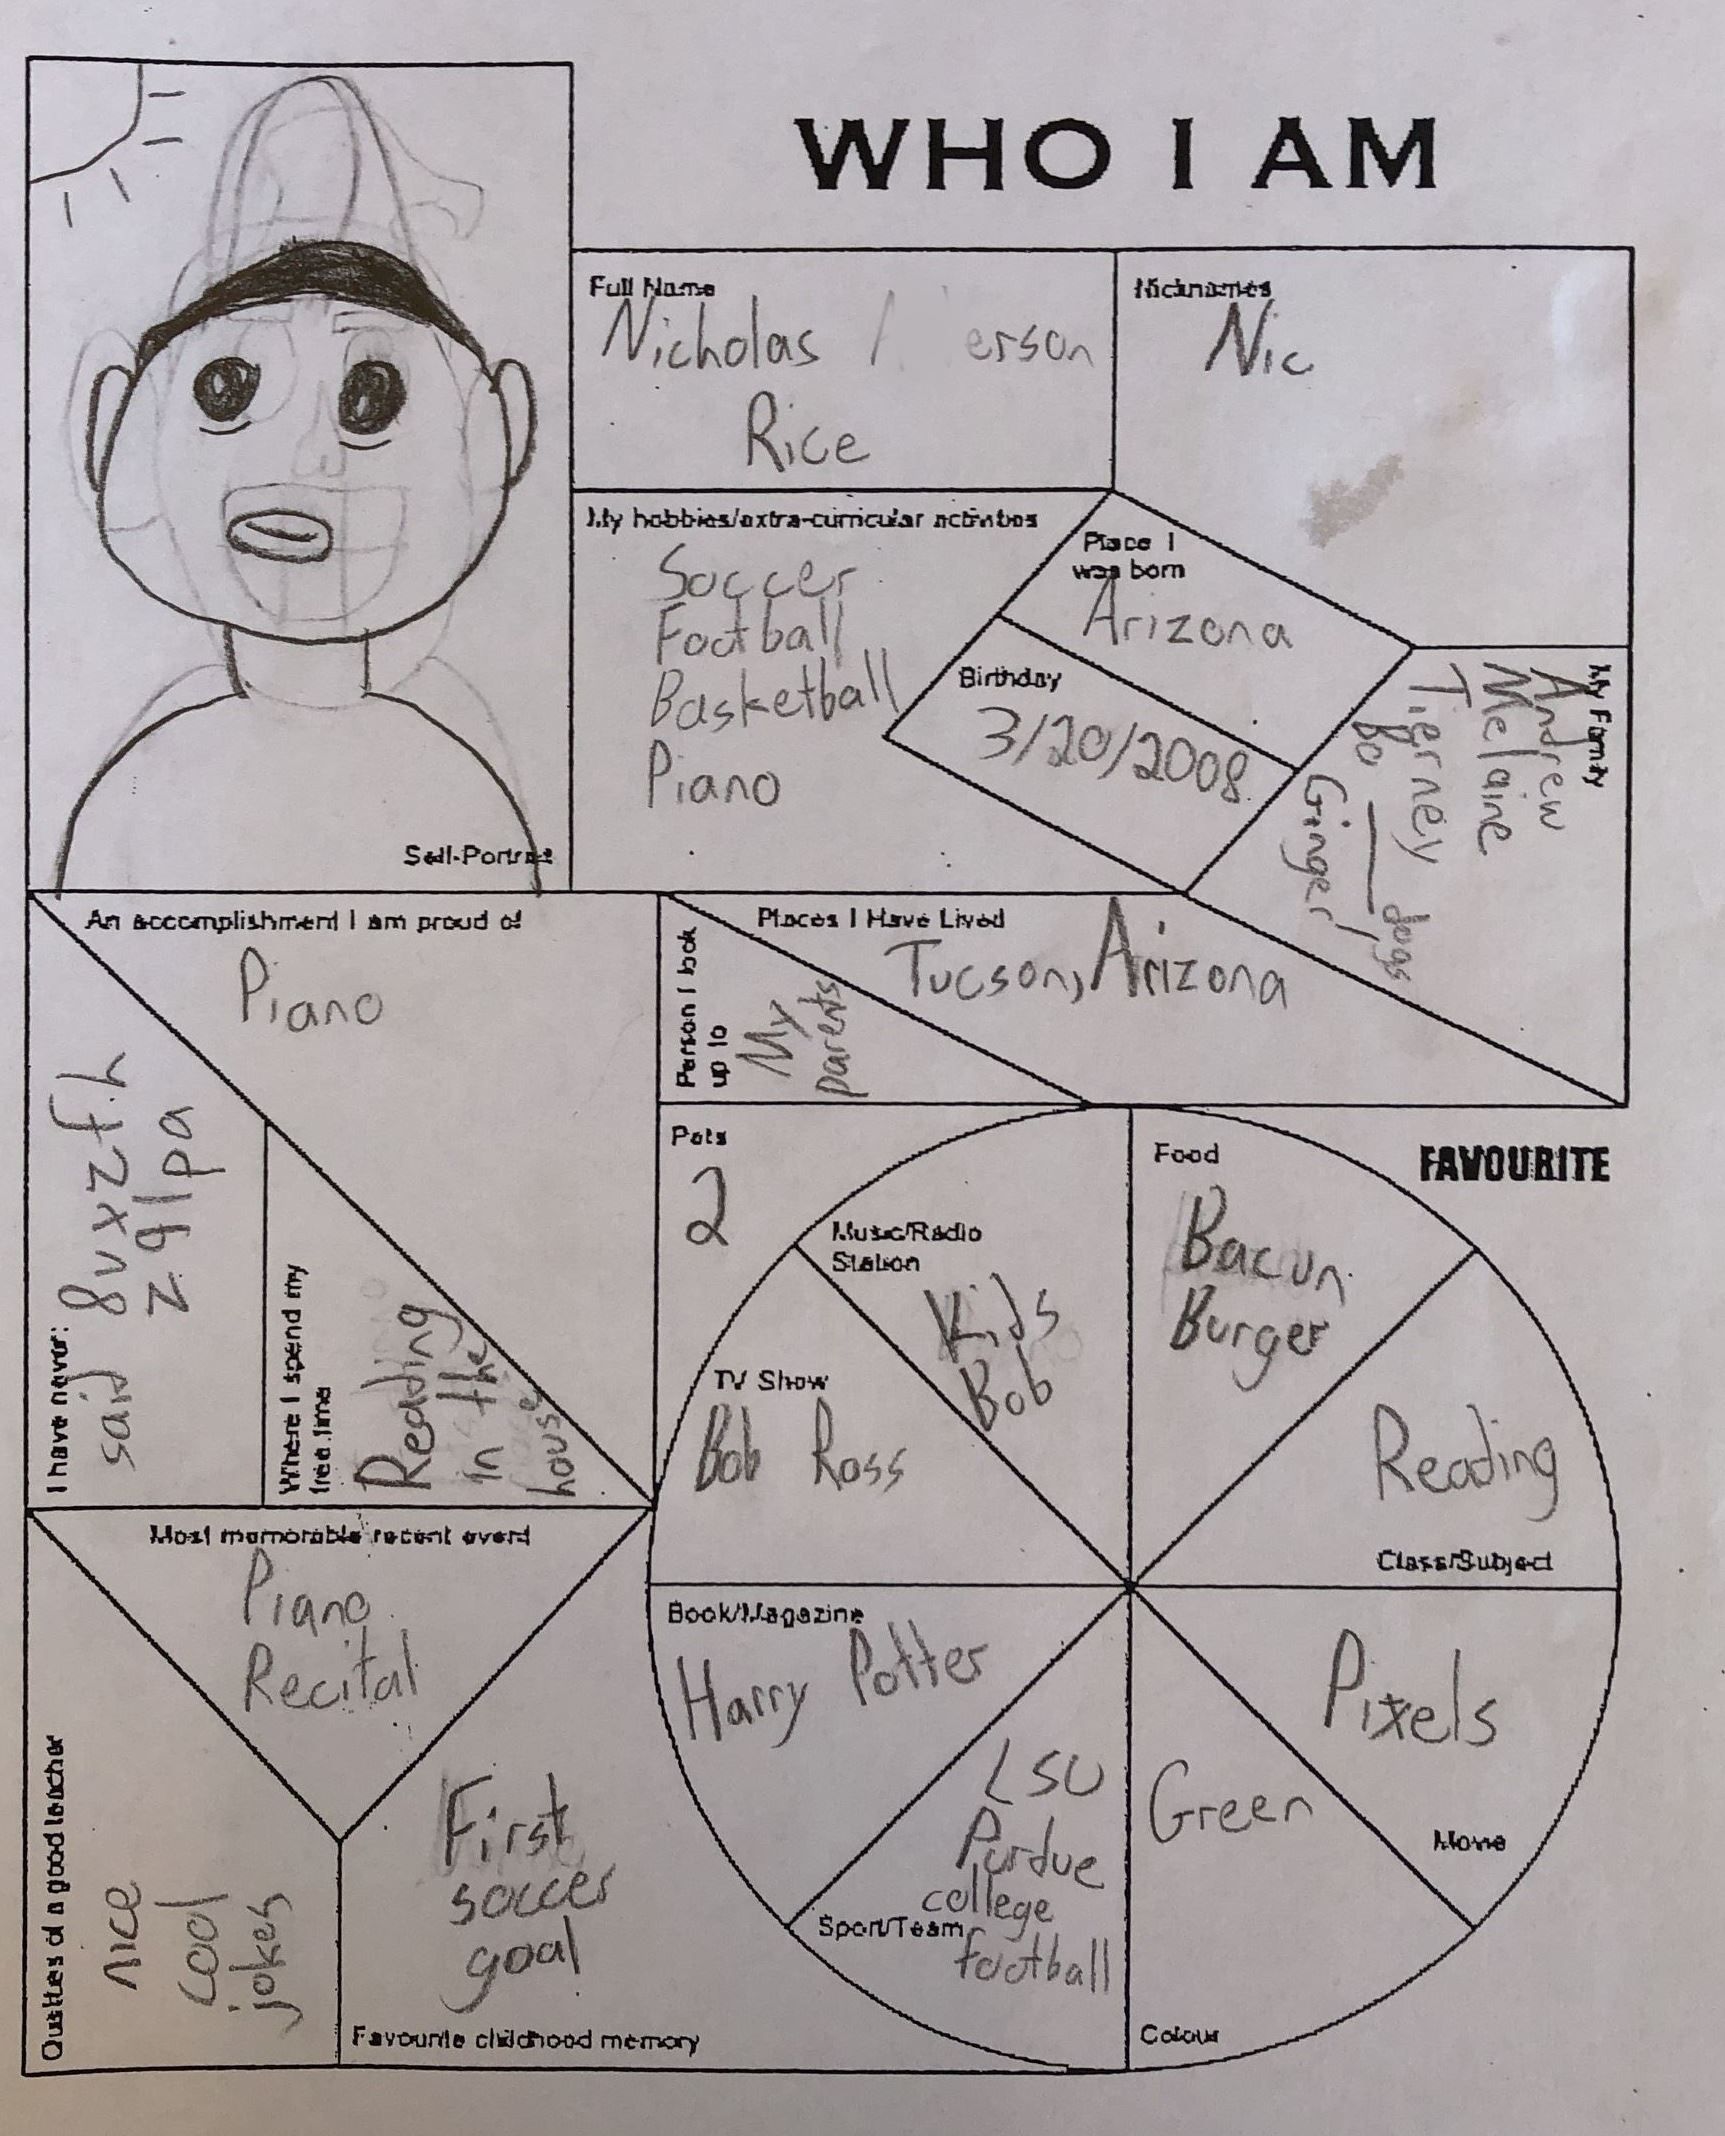 WHO I AM
Full Name
Nicholas
Rice
Nicknames
Nic
My hobbies/extra-curricular activities
Soccer
Football
Basketball
Piano
Place I
was born
Arizona
Birthday
3/20/2008
My Family
Andrew
Melaine
Tierney
Bo
Ginger
dogs
Self-Portrait
An accomplishment I am proud of
Piano
Person I look
up to
My
parents
Places I Have Lived
Tucson, Arizona
I have never:
said
z q l pa
Where I spend my
free time
Reading
in the
house
Pets
2
FAVOURITE
Music/Radio
Station
Kids
Bob
Food
Bacun
Burger
TV Show
Bob Ross
Reading
Class/Subject
Most memorable recent event
Piano
Recital
Book/Magazine
Harry Potter
Pixels
Movie
LSU
Purdue
college
football
Sport/Team
Green
Colour
Qualities of a good teacher
nice
cool
jokes
First
soccer
goal
Favourite childhood memory